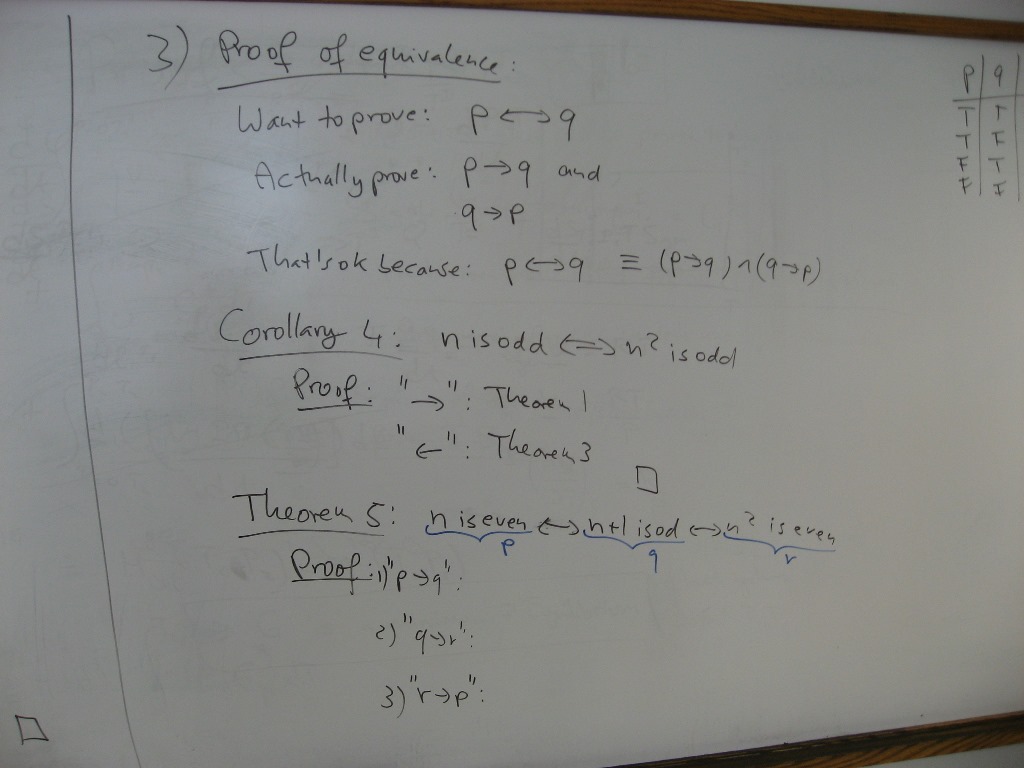 3) Proof of equivalence:
Want to prove: p ↔ q
Actually prove: p → q and
q → p
That's ok because: p ↔ q ≡ (p→q) ∧ (q→p)
Corollary 4: n is odd ⟺ n² is odd
Proof: "→": Theorem 1
"←": Theorem 3
□
Theorem 5: n is even ↔ n+1 is od ↔ n² is even
p q r
Proof: 1) "p → q":
2) "q → r":
3) "r → p":
□
p q
T T
T F
F T
F F